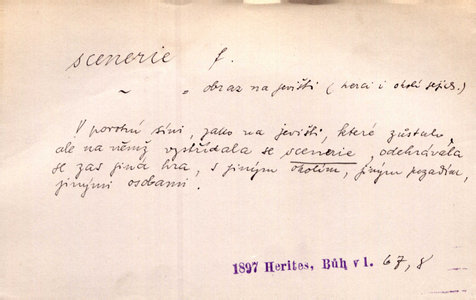 scenerie f.
~ „ obraz na jevišti (herci i okolí jejich.)
V porotní síni, jako na jevišti, které zůstalo,
ale na němž vystřídala se scenerie, odehrávala
se zas jiná hra, s jiným okolím, jiným pozadím,
jinými osobami.
1897 Herites, Bůh v l. 67, 8